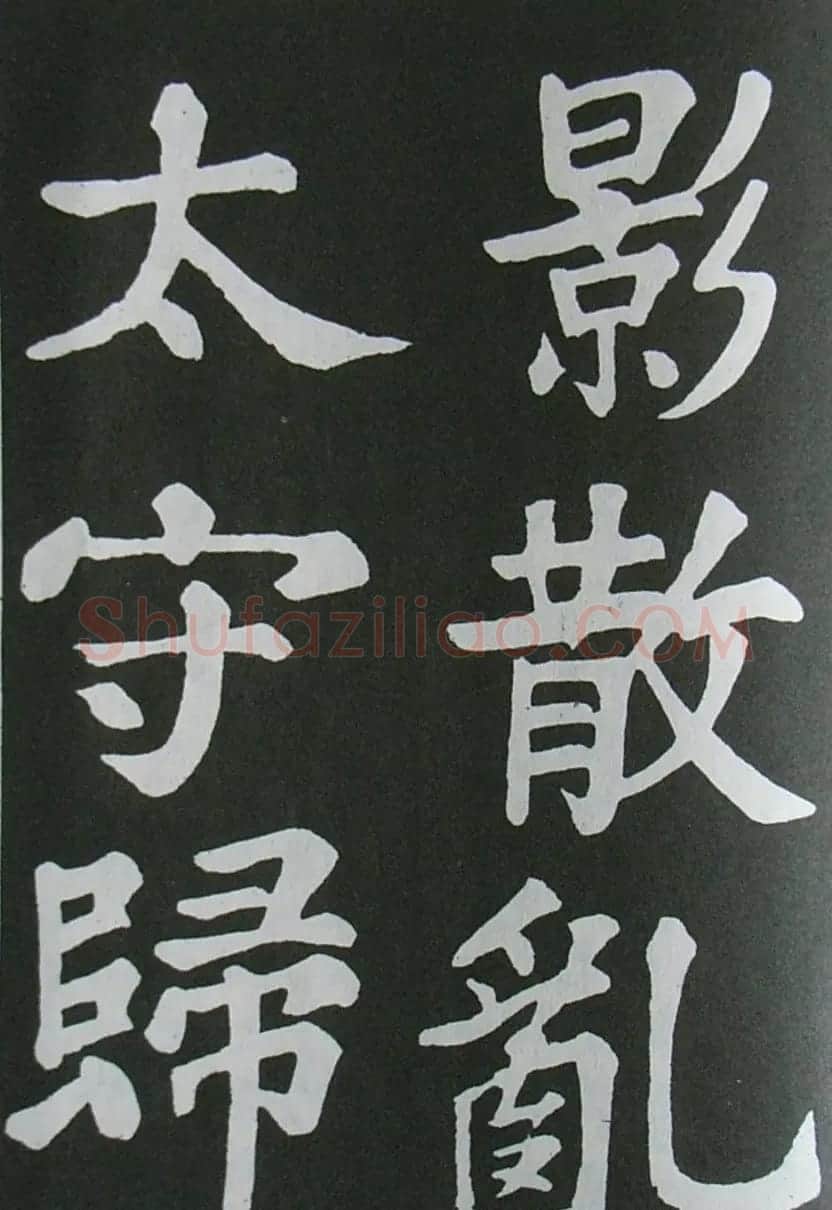 影散亂
太守歸
Shufaziliao.COM